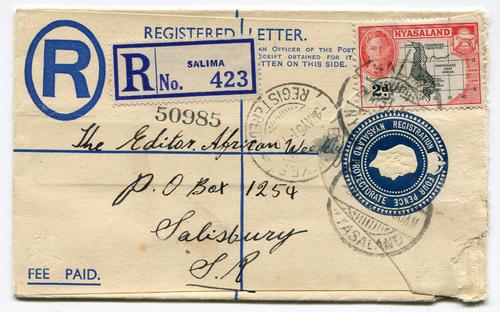 REGISTERED LETTER.
AN OFFICER OF THE POST
RECEIPT OBTAINED FOR IT.
TEN ON THIS SIDE.
R
R
SALIMA
No. 423
NYASALAND
2d
50985
REGISTERED
REGISTRATION FOUR PENCE
NYASALAND PROTECTORATE
The Editor, African
P.O Box 1254
Salisbury
S.R
NYASALAND
FEE PAID.